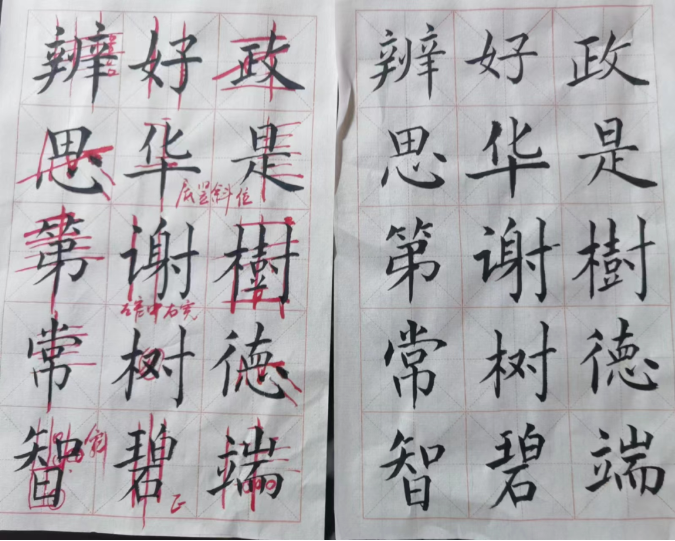 辨好政
思华是
底呈斜位
第谢樹
常树德
智碧端
斜
正
辨好政
思华是
第谢樹
常树德
智碧端